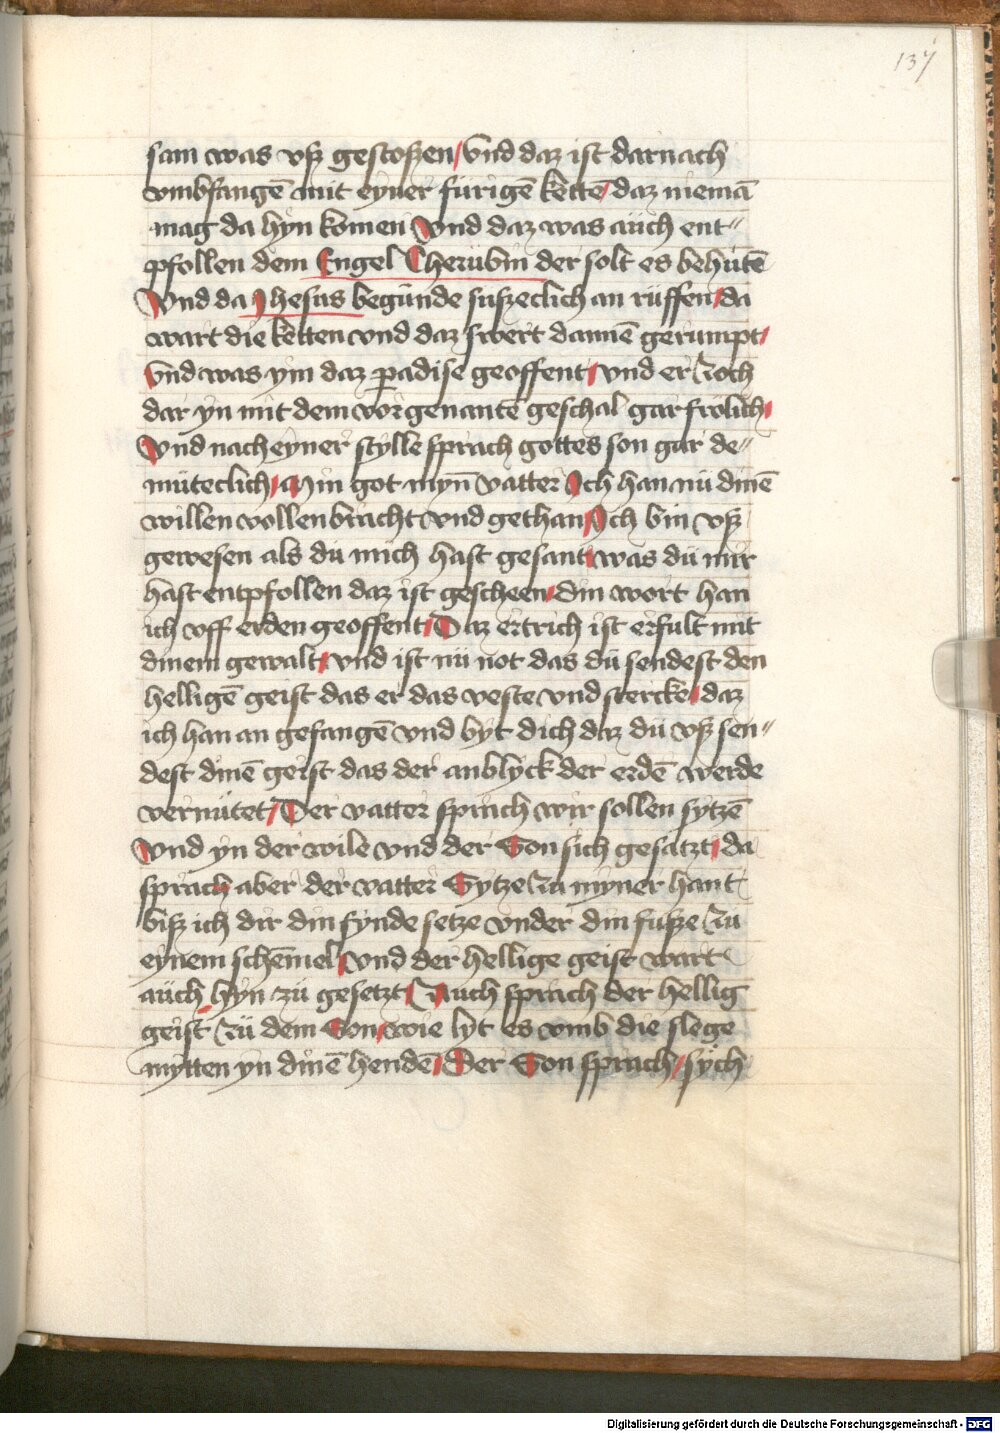 137
sam was vsz gestoszen / vnd daz ist darnach
vmbfangē mit eyner fürigē kettē / daz niemā
mag da hyn komen Vnd daz was aüch ent"
pfollen dem Engel Cherübin der solt es behütē
Vnd da Jhesus begünde süszeclich an rüffen / da
wart die ketten vnd daz swert dannē gerumpt /
Vnd was ym daz padise geoffent / vnd er zoch
dar yn mit dem vor genantē geschal gar frölich /
Vnd nach eyner stylle sprach gottes son gar de"
müteclich / Min got myn vatter Ich han nü dinē
willen vollenbracht vnd gethan / Ich bin vsz
gewesen als dü mich hast gesant / was dü mir
hast entpfollen daz ist gescheen / din wort han
ich vff erden geoffent / Daz ertrich ist erfult mit
dinem gewalt / vnd ist nü not das dü sendest den
helligē geist das er das veste vnd stercke / daz
ich han an gefangē vnd byt dich daz dü vsz sen"
dest dinē geist das der anblyck der erdē werde
vernütet / Der vatter sprach wir sollen sytzē
Vnd yn der wile vnd der Son sich gesatzt / da
sprach aber der vatter Sytze zu myner hant
bisz ich dir din fynde setze vnder din füsze zu
eynem schemel / vnd der hellige geist wart
aüch hyn zü gesetzt / Auch sprach der hellig
geist zü dem Son / wie lyt es vmb die slege
mytten yn dinē hendē / Der Son sprach / sych
Digitalisierung gefördert durch die Deutsche Forschungsgemeinschaft - DFG